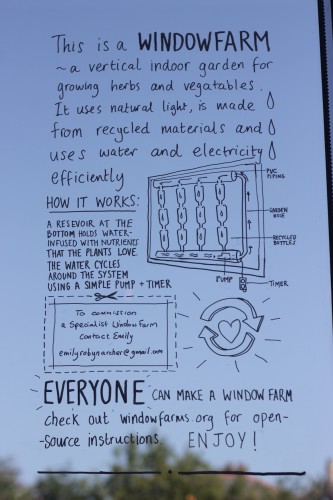 This is a WINDOWFARM
~a vertical indoor garden for
growing herbs and vegatables.
It uses natural light, is made
from recycled materials and
uses water and electricity
efficiently
HOW IT WORKS:
A RESEVOIR AT THE
BOTTOM HOLDS WATER-
INFUSED WITH NUTRIENTS
THAT THE PLANTS LOVE.
THE WATER CYCLES
AROUND THE SYSTEM
USING A SIMPLE PUMP + TIMER
PVC
PIPING
GARDEN
HOSE
RECYCLED
BOTTLES
PUMP
TIMER
To commission
a Specialist Window Farm
Contact Emily
emilyrobynarcher@gmail.com
EVERYONE CAN MAKE A WINDOW FARM
check out windowfarms.org for open-
-source instructions. ENJOY!